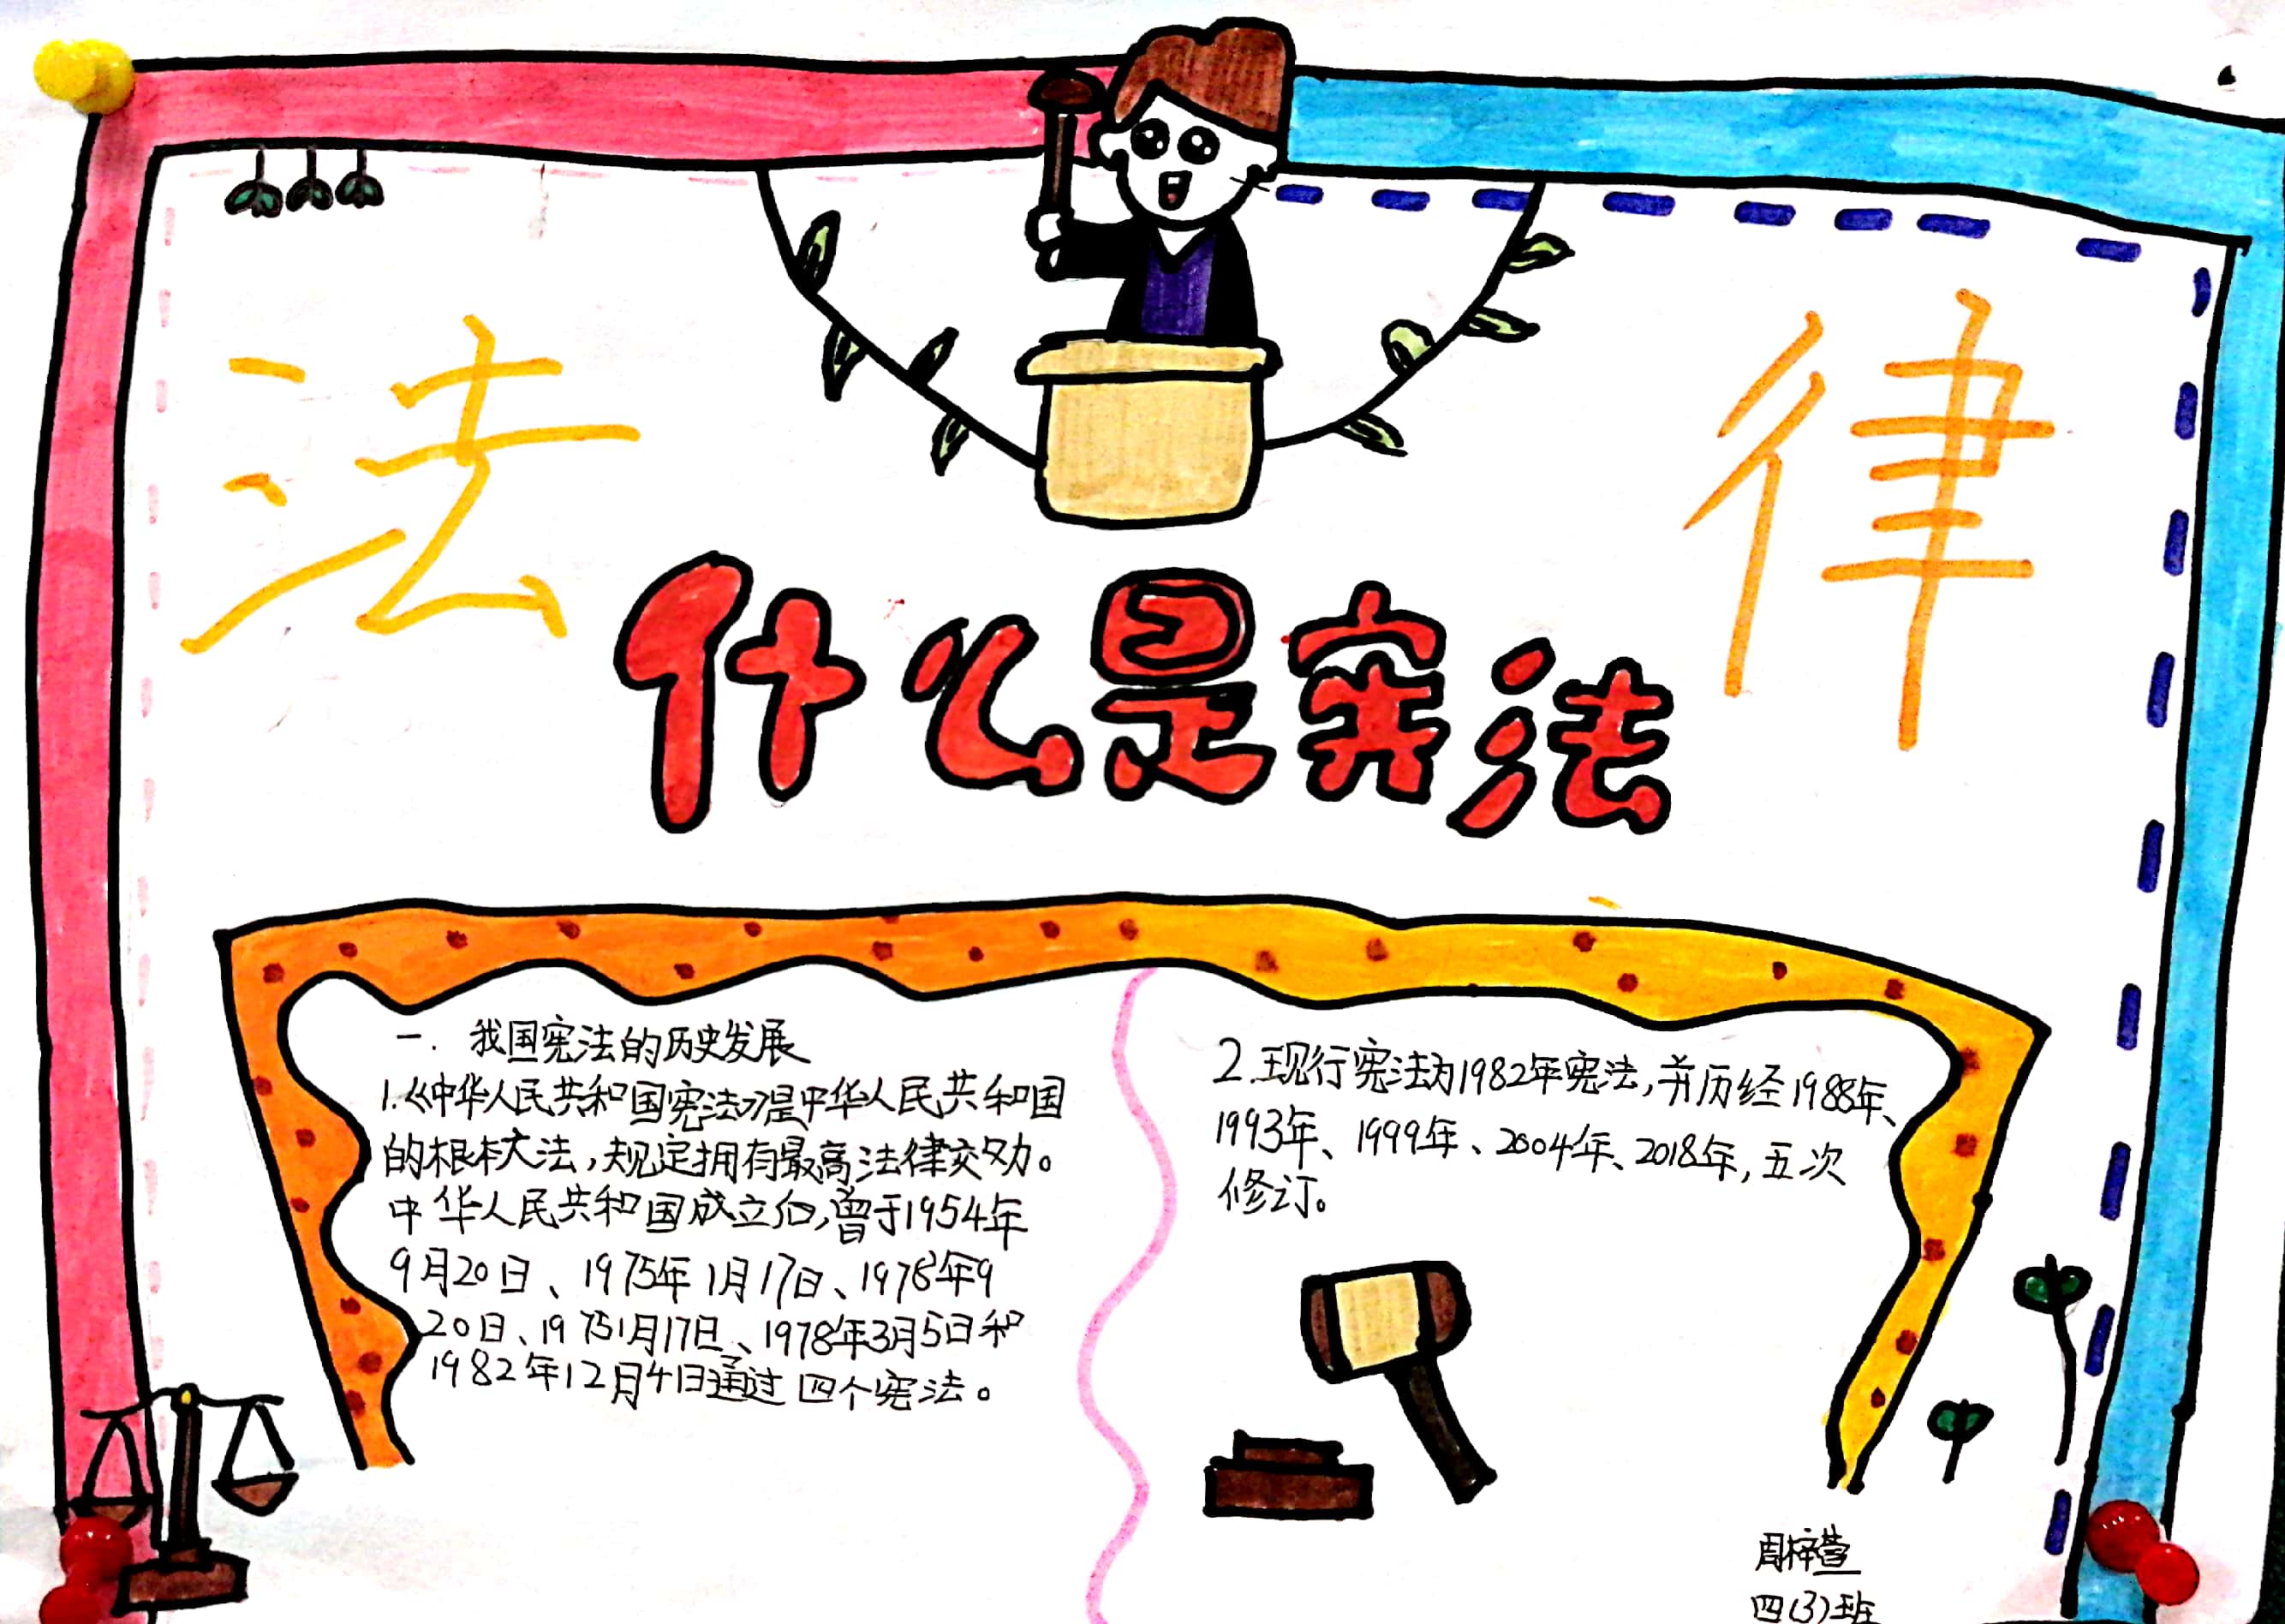 法 律
什么是宪法
一. 我国宪法的历史发展
1.《中华人民共和国宪法》是中华人民共和国
的根本大法,规定拥有最高法律效力。
中华人民共和国成立后,曾于1954年
9月20日、1975年1月17日、1978年9
20日、19751月17日、1978年3月5日和
1982年12月4日通过四个宪法。
2.现行宪法为1982年宪法,并历经1988年、
1993年、1999年、2004年、2018年,五次
修订。
周梓萱
四(3)班